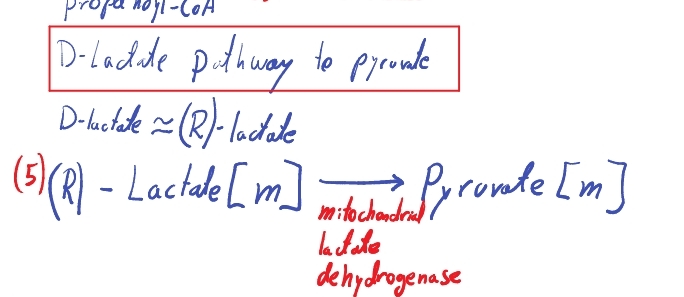 propanoyl-CoA
D-Lactate pathway to pyruvate
D-lactate ≃ (R)-lactate
(5) (R) - Lactate [m] ⟶ Pyruvate [m]
mitochondrial
lactate
dehydrogenase